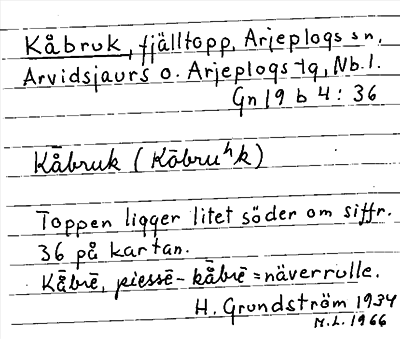 Kåbruk, fjälltopp, Arjeplogs sn,
Arvidsjaurs o. Arjeplogs tg, Nb. l.
Gn 19 b 4 : 36
Kåbruk (Kåbruʰk)
Toppen ligger litet söder om siffr.
36 på kartan.
Kåbrē, piessē-kåbrē = näverrulle.
H. Grundström 1934
M.L. 1966